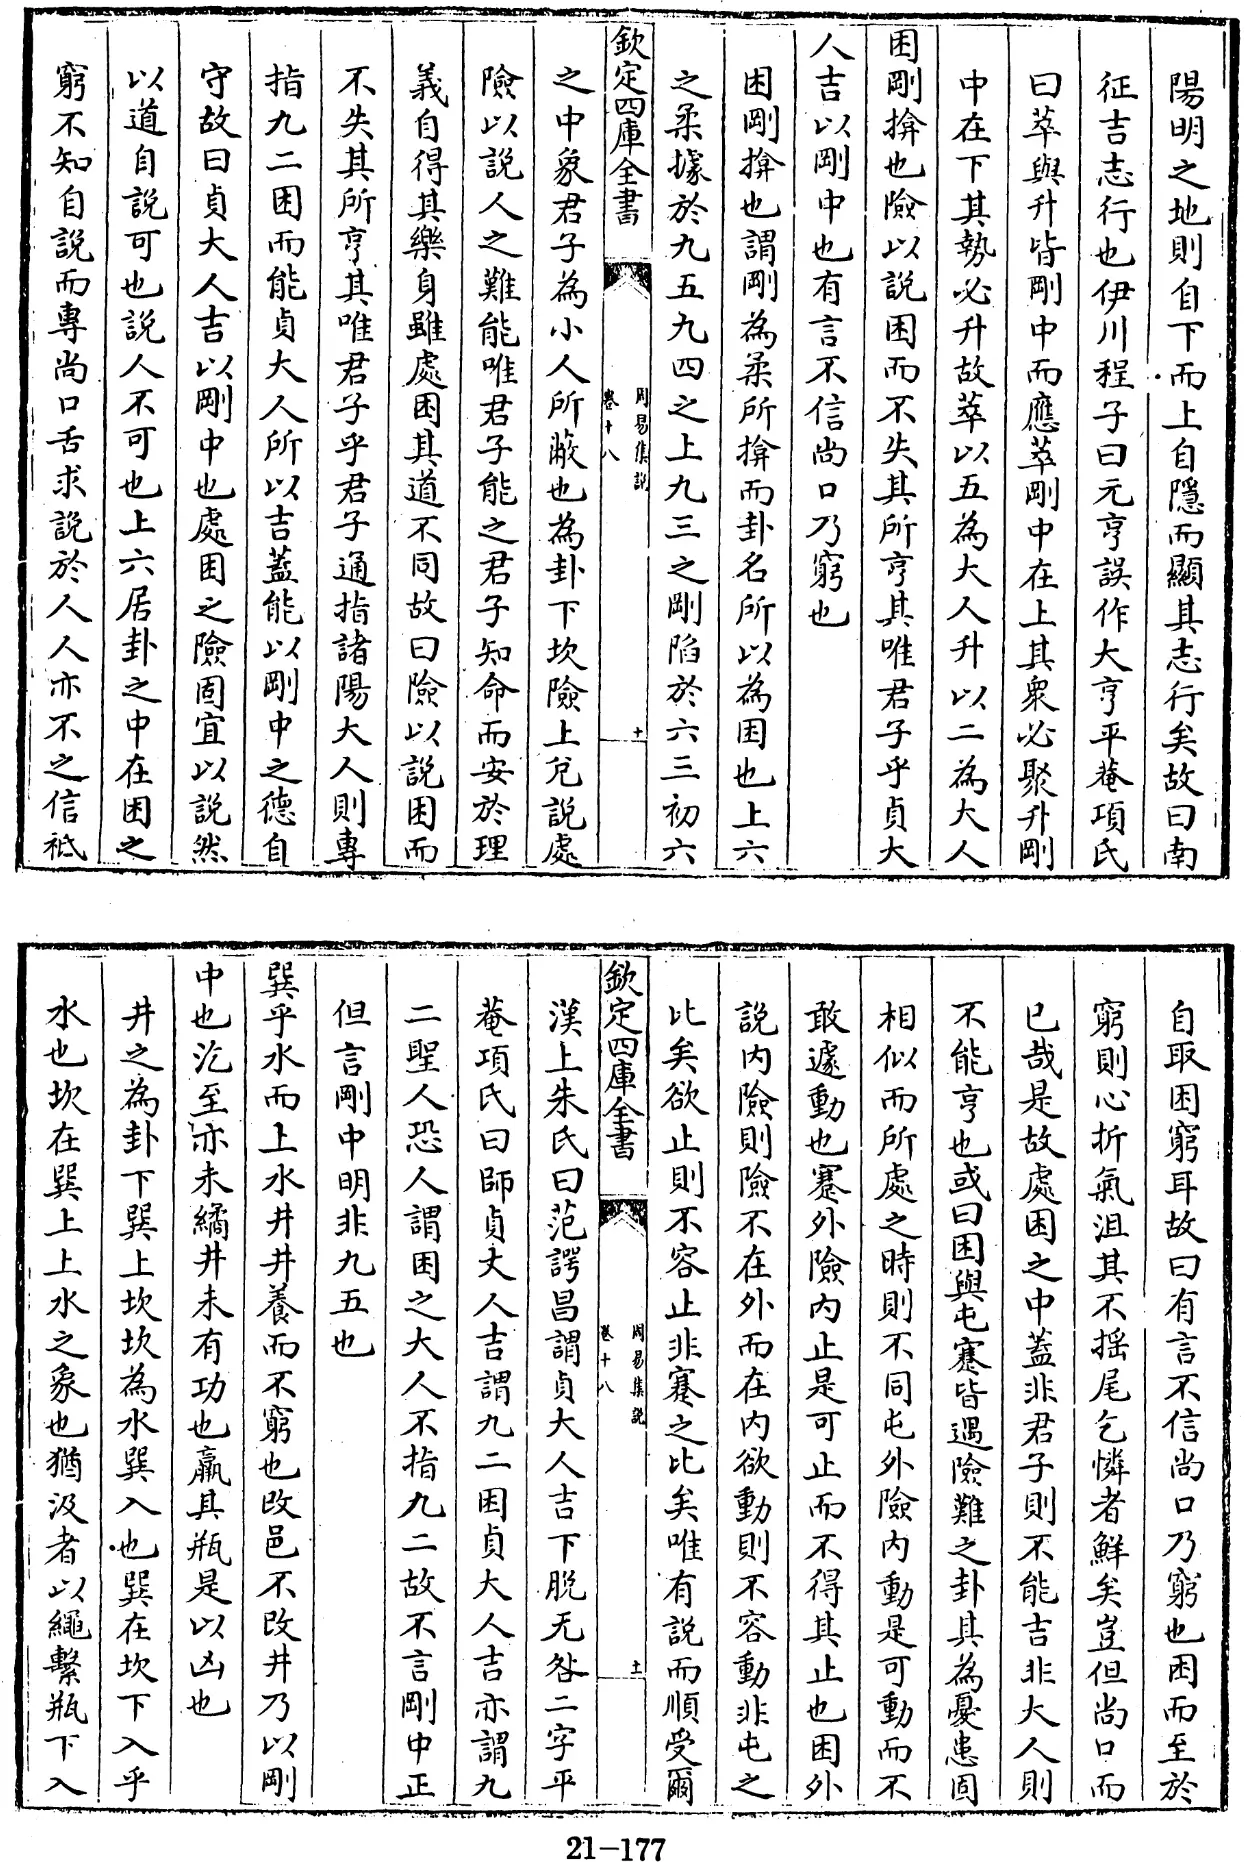 陽明之地則自下而上自隱而顯其志行矣故曰南
征吉志行也伊川程子曰元亨誤作大亨平菴項氏
曰萃與升皆剛中而應萃剛中在上其衆必聚升剛
中在下其勢必升故萃以五為大人升以二為大人
困剛揜也險以説困而不失其所亨其唯君子乎貞大
人吉以剛中也有言不信尚口乃窮也
困剛揜也謂剛為柔所揜而卦名所以為困也上六
之柔據於九五九四之上九三之剛陷於六三初六
欽定四庫全書
周易集説
卷十八
十
之中象君子為小人所蔽也為卦下坎險上兌説處
險以説人之難能唯君子能之君子知命而安於理
義自得其樂身雖處困其道不同故曰險以説困而
不失其所亨其唯君子乎君子通指諸陽大人則專
指九二困而能貞大人所以吉蓋能以剛中之德自
守故曰貞大人吉以剛中也處困之險固宜以説然
以道自説可也説人不可也上六居卦之中在困之
窮不知自説而專尚口舌求説於人人亦不之信祗
自取困窮耳故曰有言不信尚口乃窮也困而至於
窮則心折氣沮其不搖尾乞憐者鮮矣豈但尚口而
已哉是故處困之中蓋非君子則不能吉非大人則
不能亨也或曰困與屯蹇皆遇險難之卦其為憂患固
相似而所處之時則不同屯外險內動是可動而不
敢遽動也蹇外險內止是可止而不得其止也困外
説內險則險不在外而在內欲動則不容動非屯之
比矣欲止則不容止非蹇之比矣唯有説而順受爾
欽定四庫全書
周易集説
卷十八
十一
漢上朱氏曰范諤昌謂貞大人吉下脫无咎二字平
菴項氏曰師貞丈人吉謂九二困貞大人吉亦謂九
二聖人恐人謂困之大人不指九二故不言剛中正
但言剛中明非九五也
巽乎水而上水井井養而不窮也改邑不改井乃以剛
中也汔至亦未繘井未有功也羸其瓶是以凶也
井之為卦下巽上坎坎為水巽入也巽在坎下入乎
水也坎在巽上上水之象也猶汲者以繩繫瓶下入
21-177